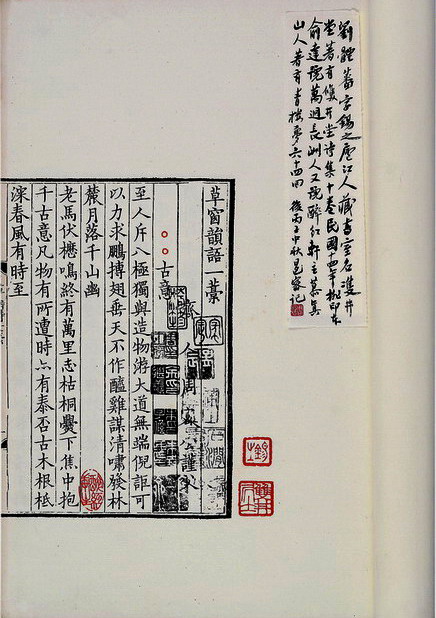 劉體蕃字錫之廬江人藏書室名雙井
堂著有雙井堂詩集十卷民國十四年印本
俞達號長洲人又號醉紅軒主慕真
山人著有青樓夢六十四回 後丙子中秋記
草窗韻語一藁
人周密公謹父
古意
至人斥八極獨與造物游大道無端倪詎可
以力求鵬摶翅垂天不作醯雞謀清嘯發林
麓月落千山幽
老馬伏櫪鳴終有萬里志枯桐爨下焦中抱
千古意凡物有所遭時亦有泰否古木根柢
深春風有時至
錫之